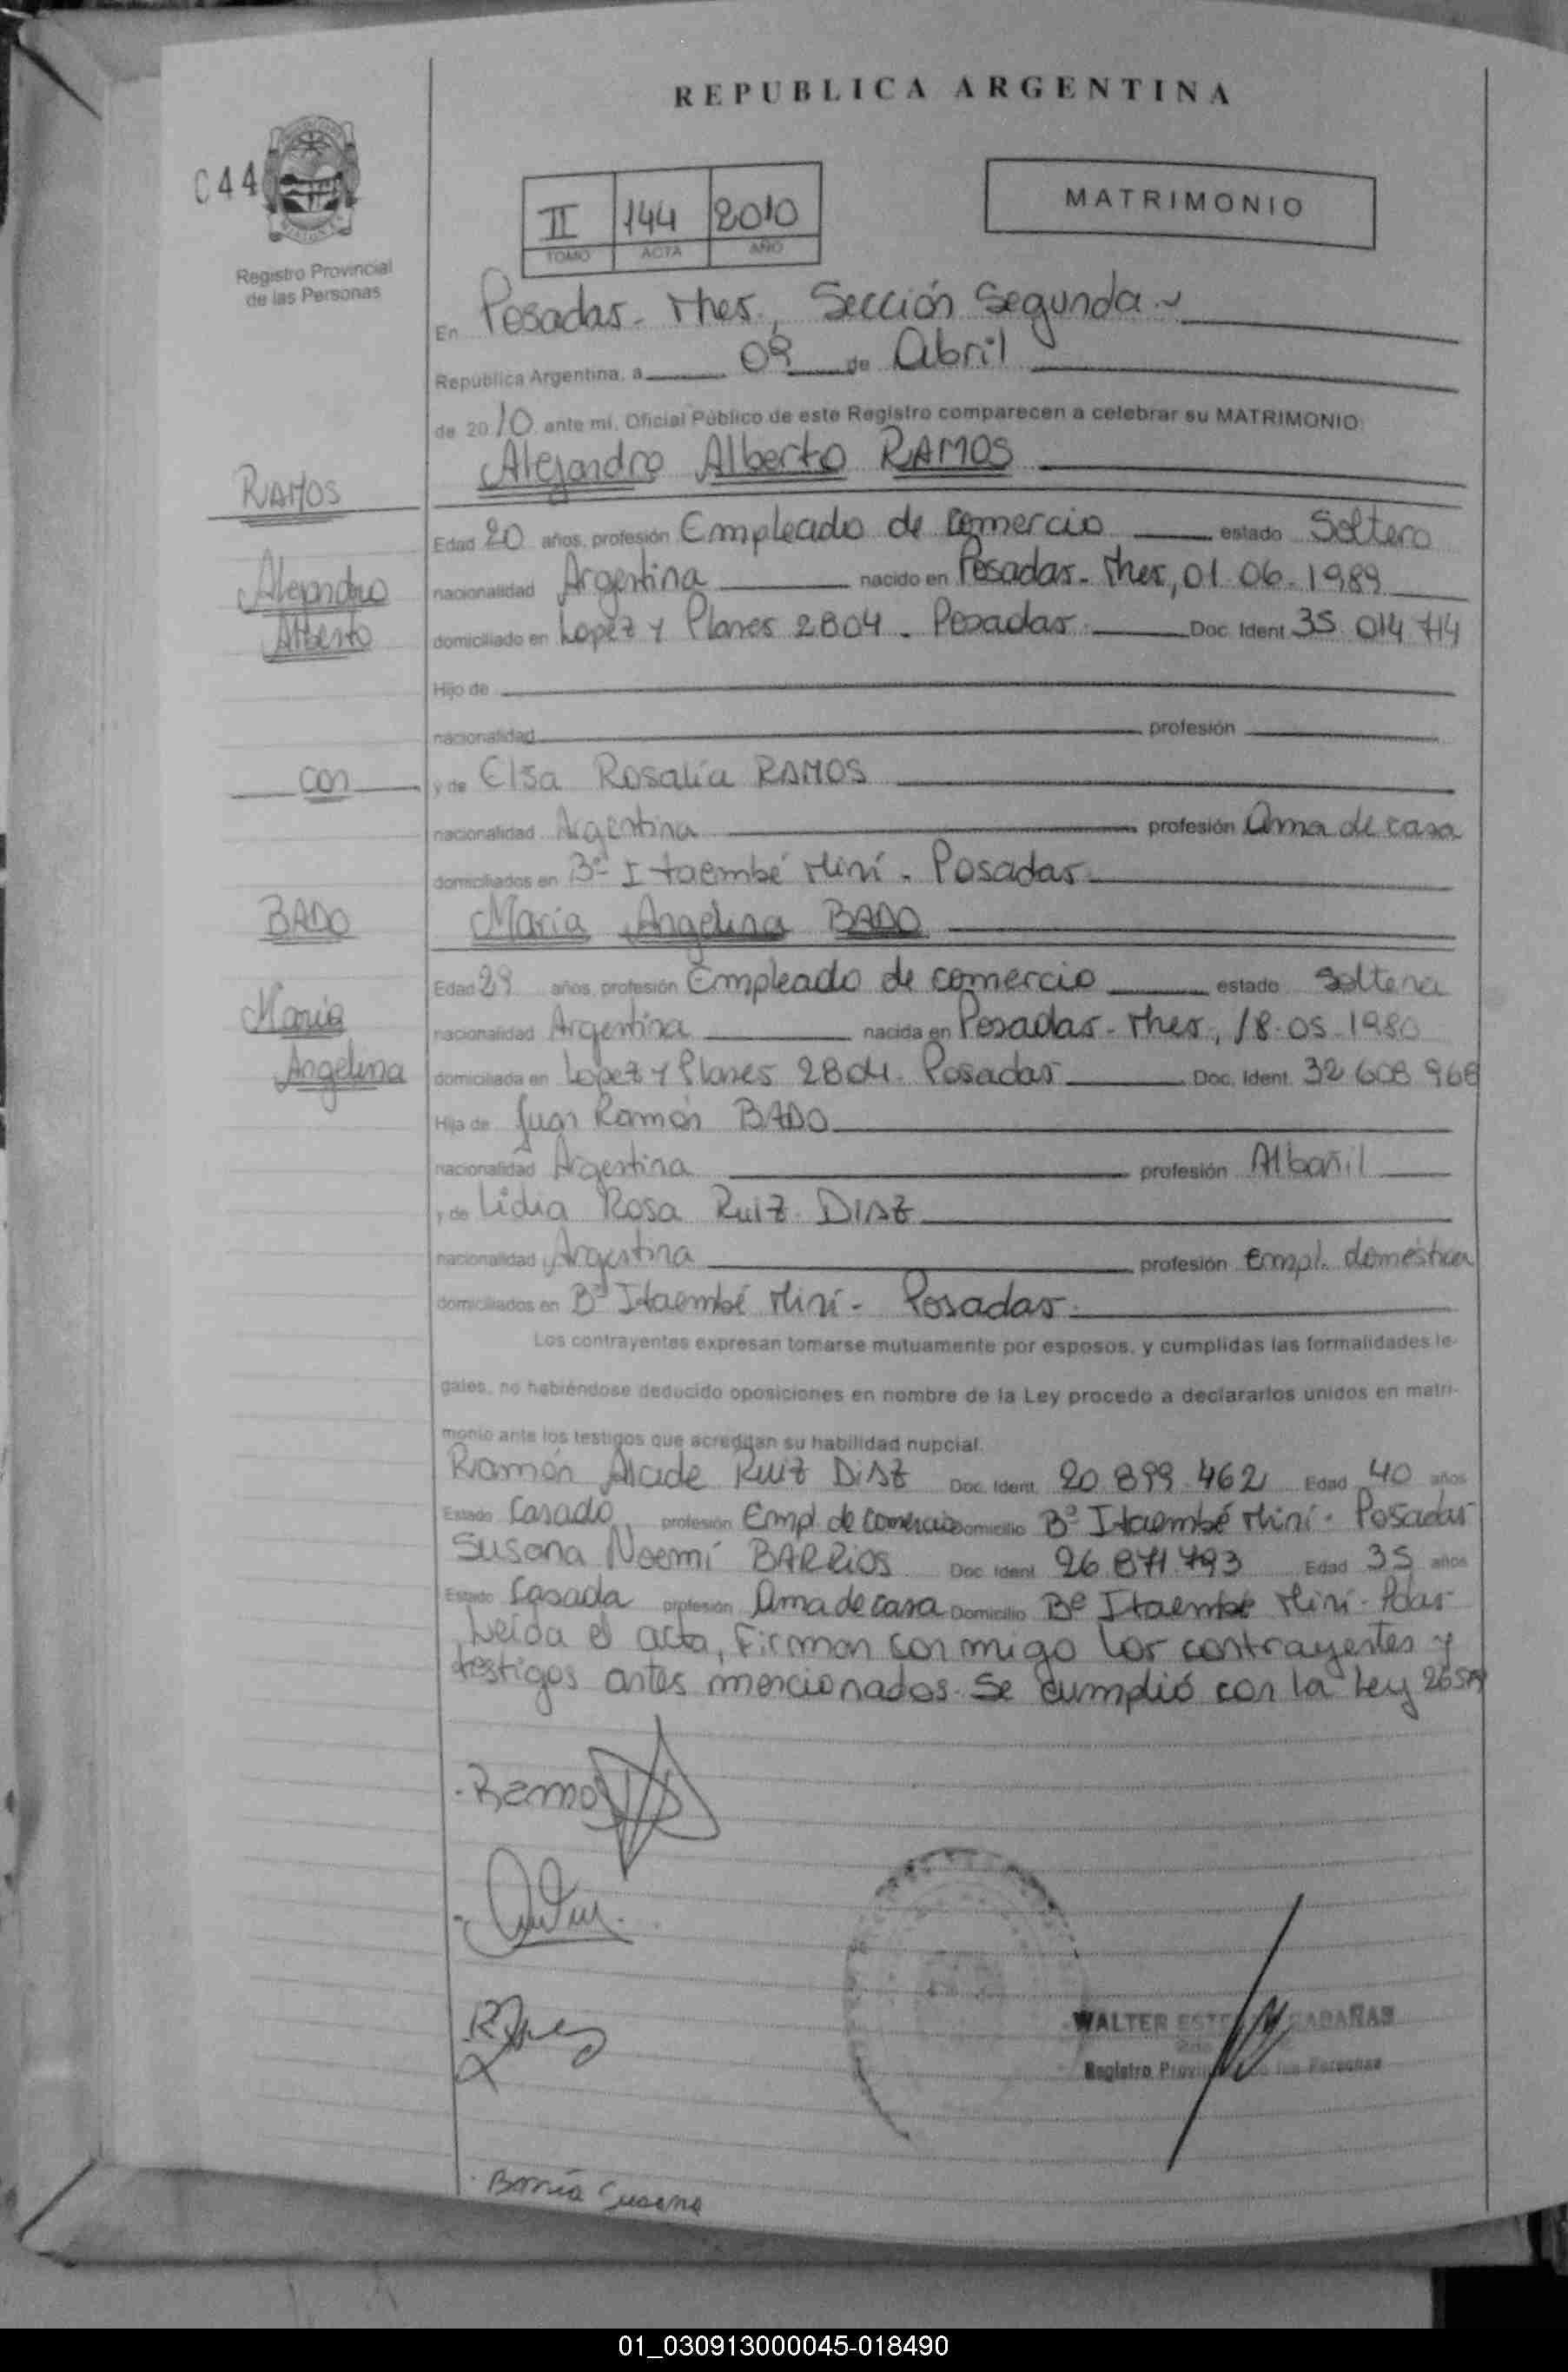 REPUBLICA ARGENTINA
C44
II 144 2010
TOMO ACTA AÑO
MATRIMONIO
Registro Provincial
de las Personas
En Posadas - Mnes., Sección Segunda
República Argentina, a 09 de Abril
de 2010, ante mí, Oficial Público de este Registro comparecen a celebrar su MATRIMONIO:
Alejandro Alberto RAMOS
RAMOS
Edad 20 años, profesión Empleado de comercio estado Soltero
Alejandro
nacionalidad Argentina nacido en Posadas - Mnes, 01.06.1989
Alberto
domiciliado en Lopez y Planes 2804 - Posadas. Doc. Ident. 35.014.714
Hijo de
nacionalidad profesión
con
y de Elsa Rosalía RAMOS
nacionalidad Argentina profesión Ama de casa
domiciliados en Bº Itaembé Miní - Posadas
BADO
María Angelina BADO
Edad 29 años, profesión Empleado de comercio estado Soltera
María
nacionalidad Argentina nacida en Posadas - Mnes, 18.05.1980
Angelina
domiciliada en Lopez y Planes 2804 - Posadas Doc. Ident. 32.608.968
Hija de Juan Ramón BADO
nacionalidad Argentina profesión Albañil
y de Lidia Rosa Ruiz DIAZ
nacionalidad Argentina profesión Empl. doméstica
domiciliados en Bº Itaembé Miní - Posadas.
Los contrayentes expresan tomarse mutuamente por esposos, y cumplidas las formalidades le-
gales, no habiéndose deducido oposiciones en nombre de la Ley procedo a declararlos unidos en matri-
monio ante los testigos que acreditan su habilidad nupcial.
Ramón Ruiz DIAZ Doc. Ident. 20.899.462 Edad 40 años
Estado Casado profesión Empl. de comercio Domicilio Bº Itaembé Miní - Posadas
Susana Noemí BARRIOS Doc. Ident. 26.871.793 Edad 35 años
Estado Casada profesión Ama de casa Domicilio Bº Itaembé Miní - Pdas
Leída el acta, Firman conmigo los contrayentes y
testigos antes mencionados. Se cumplió con la Ley
Ramos
WALTER CABAÑAS
Registro Provincial de las Personas
Susana
01_030913000045-018490